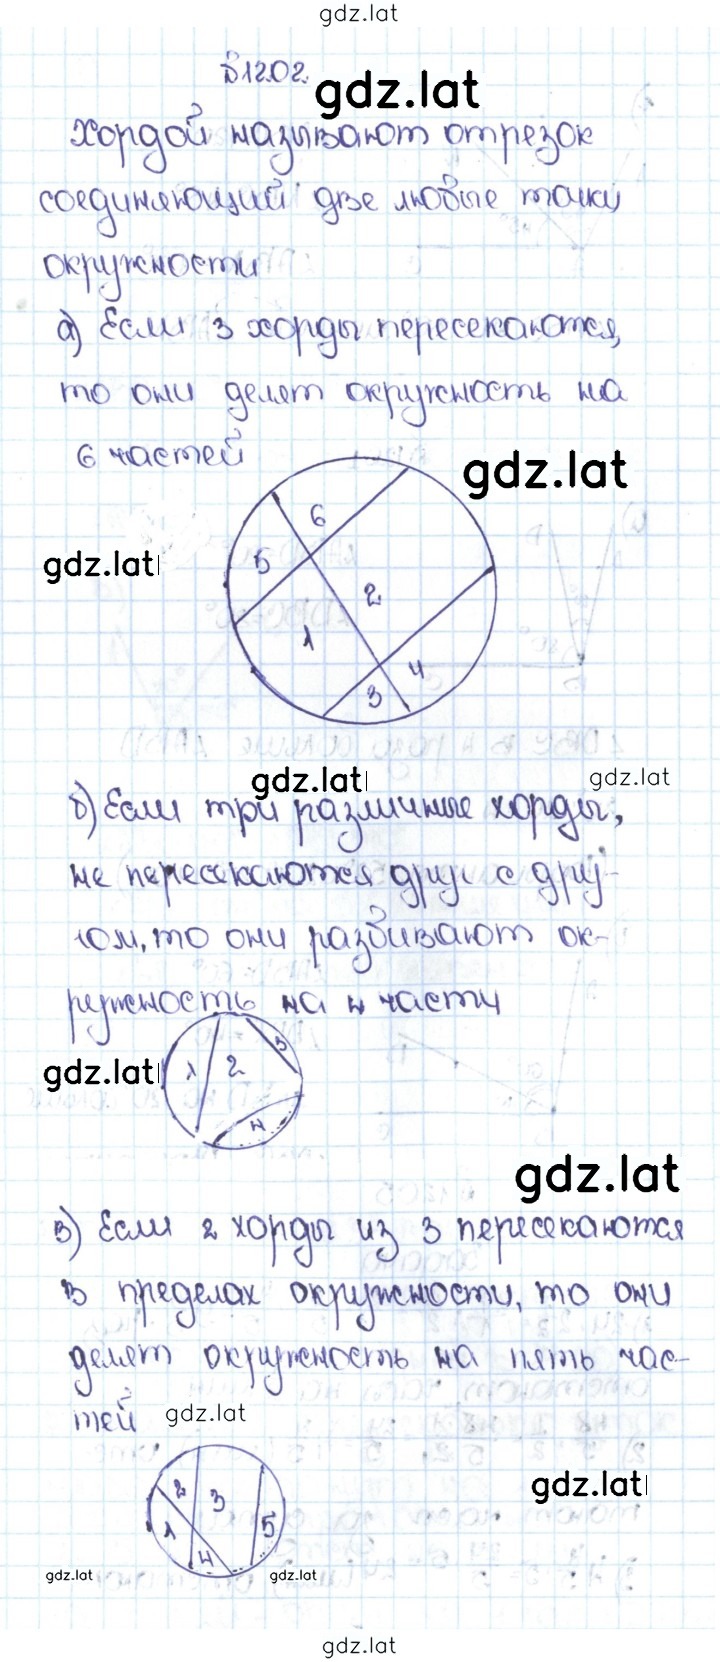 gdz.lat
Б1202.
gdz.lat
Хордой называют отрезок
соединяющий две любые точки
окружности
а) Если 3 хорды пересекаются,
то они делят окружность на
6 частей
gdz.lat
gdz.lat
6
5
2
1
4
3
gdz.lat
gdz.lat
б) Если три различные хорды,
не пересекаются друг с дру-
гом, то они разбивают ок-
ружность на 4 части
gdz.lat
1 2 3
4
gdz.lat
в) Если 2 хорды из 3 пересекаются
в пределах окружности, то они
делят окружность на пять час-
тей
gdz.lat
gdz.lat
2 3
1 5
4
gdz.lat
gdz.lat
gdz.lat